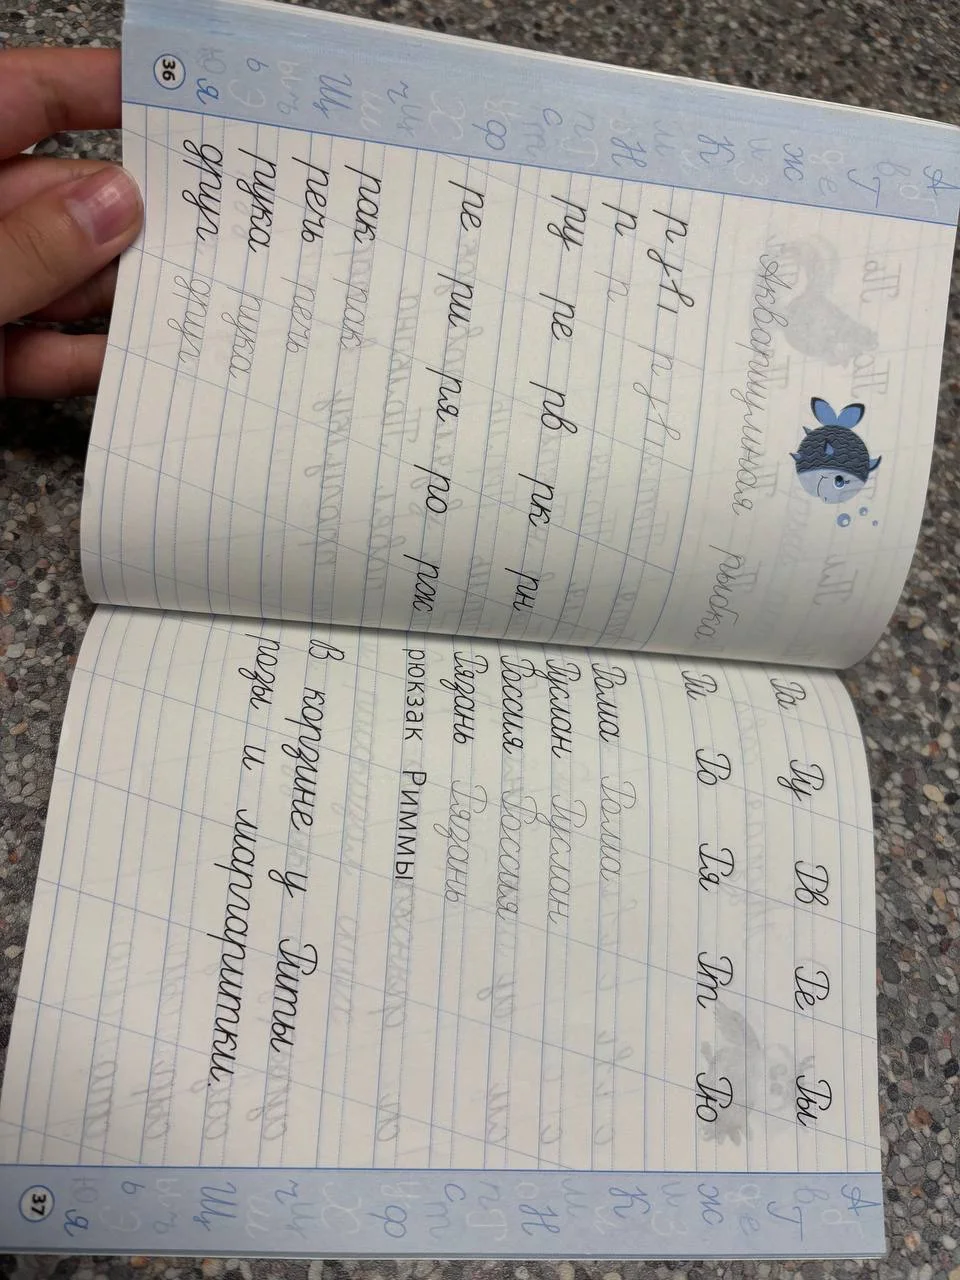 Аквариумная рыбка
р р
р р
ру ре рв рк рн
ре ри ря ро рж
рак рак
речь речь
рука рука
друг друг
36
Ра Ру Рв Ре Ры
Ри Ро Ря Рт Рю
Рома Рома
Руслан Руслан
Россия Россия
Рязань Рязань
рюкзак Риммы
В корзине у Риты
розы и маргаритки.
37